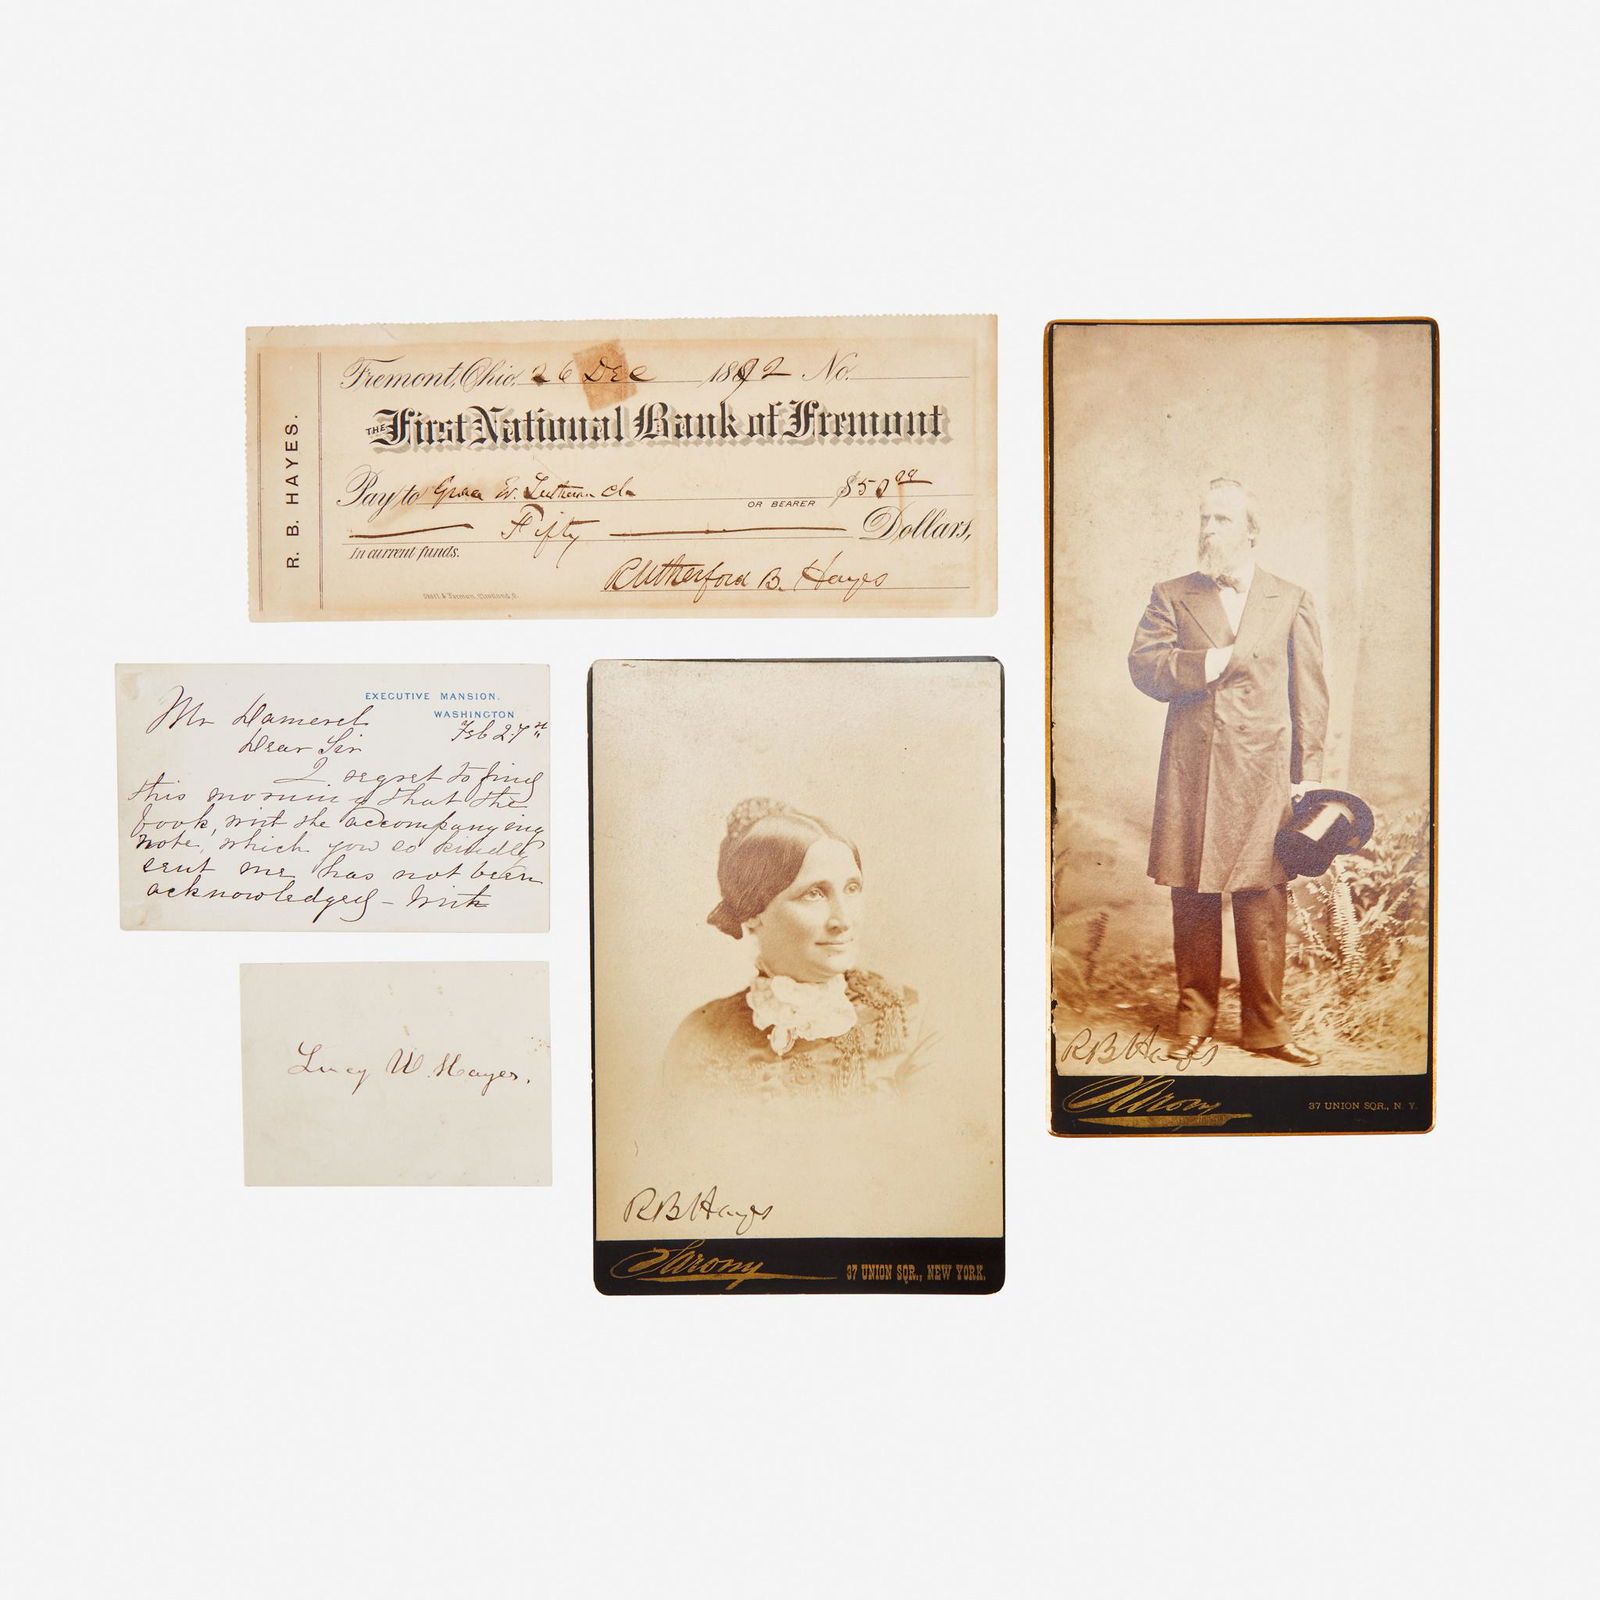 R. B. HAYES.
Fremont, Ohio. 26 Dec 1892 No.
THE First National Bank of Fremont
Pay to Grace W. Lutheran Ch OR BEARER $50 00
Fifty Dollars,
In current funds.
Rutherford B. Hayes
EXECUTIVE MANSION.
WASHINGTON
Mr
Feb 27th
Dear Sir
I regret to find
this morning that the
book, with the accompanying
note, which you so kindly
sent me has not been
acknowledged - With
Lucy W. Hayes.
RBHayes
Sarony
37 UNION SQR., NEW YORK.
RBHayes
Sarony
37 UNION SQR., N. Y.